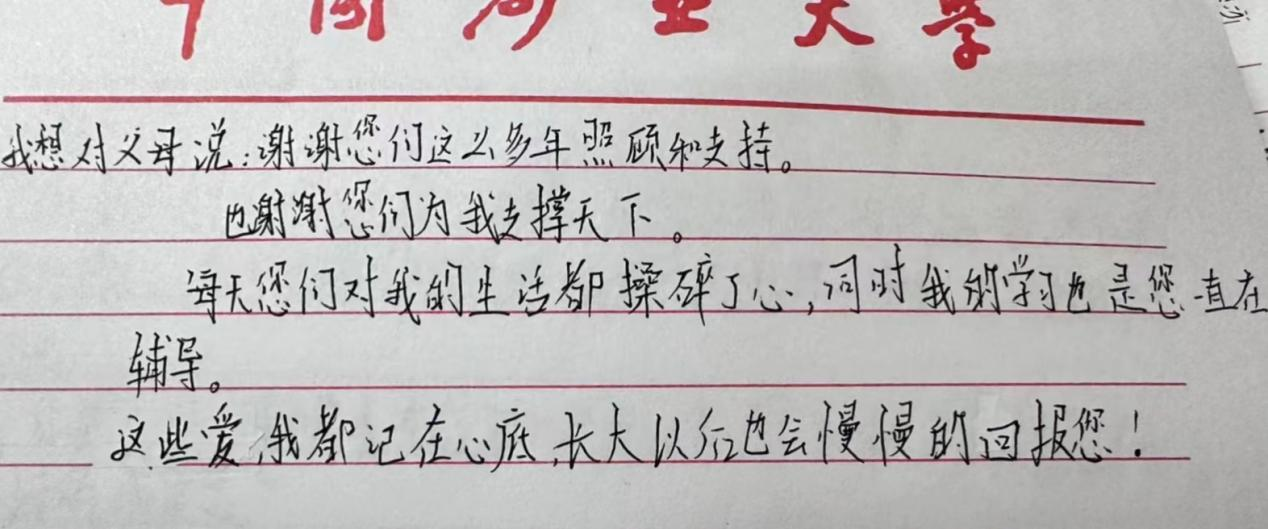 中国矿业大学
我想对父母说:谢谢您们这么多年照顾和支持。
也谢谢您们为我支撑天下。
每天您们对我的生活都操碎了心,同时我的学习也是您一直在
辅导。
这些爱,我都记在心底,长大以后也会慢慢的回报您!